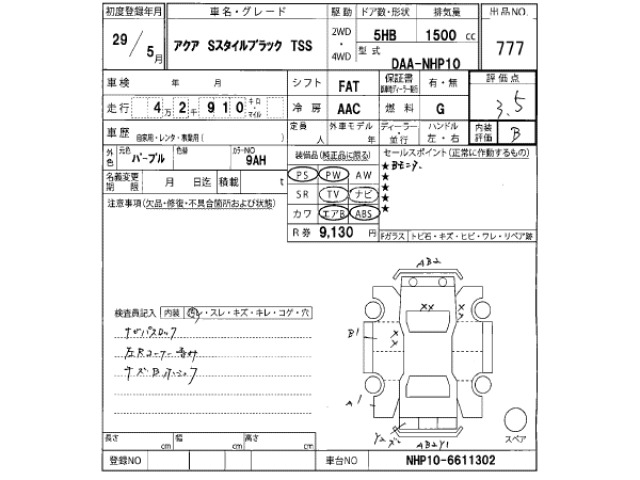 初度登録年月 車名・グレード 駆動 ドア数・形状 排気量 出品NO.
29/5月 アクア Sスタイルブラック TSS 2WD・4WD 5HB 1500 cc 777
型式 DAA-NHP10
車検 年 月 シフト FAT 保証書 有・無 評価点 3.5
走行 4万2千910キロ・マイル 冷房 AAC 燃料 G
車歴 自家用・レンタ・事業用( ) 定員 人 外車モデル 年 ディーラー・並行 ハンドル 左・右 内装評価 B
外色 元色 パープル 色替 カラーNO 9AH 装備品(純正品に限る) セールスポイント(正常に作動するもの)
名義変更期限 月 日迄 積載 t PS PW AW ★Bモニタ.
★
★
★
★
注意事項(欠品・修復・不具合箇所および状態) SR TV ナビ
カワ エアB ABS
R券 9,130 円 Fガラス トビ石・キズ・ヒビ・ワレ・リペア跡
AB2
XX X X
検査員記入 内装 ヨゴレ・スレ・キズ・キレ・コゲ・穴
B1 X X
A1
Y2 AB2Y1 スペア
長さ cm 幅 cm 高さ cm
登録NO 車台NO NHP10-6611302